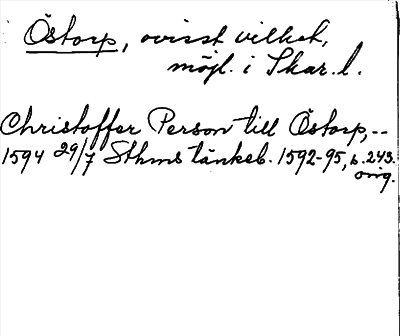 Östorp, ovisst vilket,
möjl. i Skar. l.
Christoffer Person till Östorp,--
1594 29/7 Sthms tänkeb. 1592-95, b. 243.
orig.